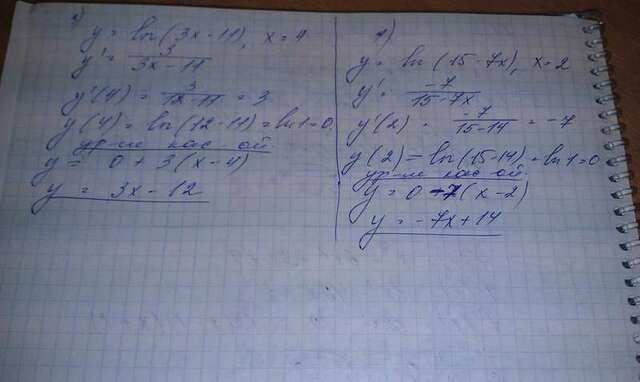 3)
y = ln(3x-11), x=4
y' = 3/(3x-11)
y'(4) = 3/(12-11) = 3
y(4) = ln(12-11) = ln1 = 0
ур-ие кас-ой
y = 0 + 3(x-4)
y = 3x-12
y = ln(15-7x), x=2
y' = -7/(15-7x)
y'(2) = -7/(15-14) = -7
y(2) = ln(15-14) = ln1 = 0
ур-ие кас-ой
y = 0 -7(x-2)
y = -7x+14